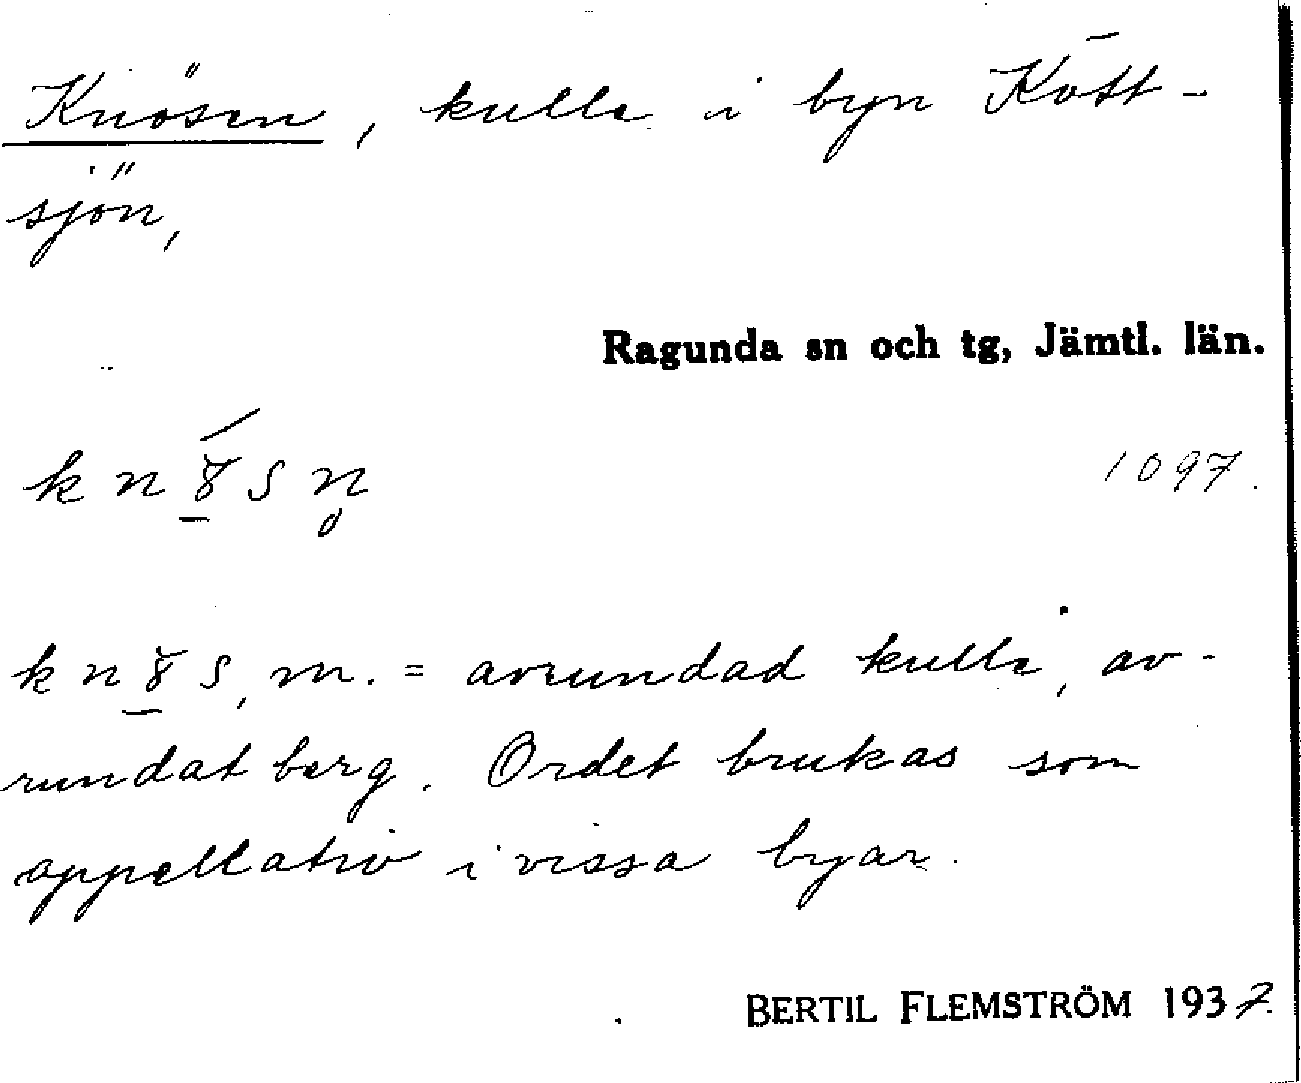 Knösen, kulle i byn Kött-
sjön,
Ragunda sn och tg, Jämtl. län.
1097.
m. = avrundad kulle, av-
rundat berg. Ordet brukas som
appellativ i vissa byar.
BERTIL FLEMSTRÖM 1937.